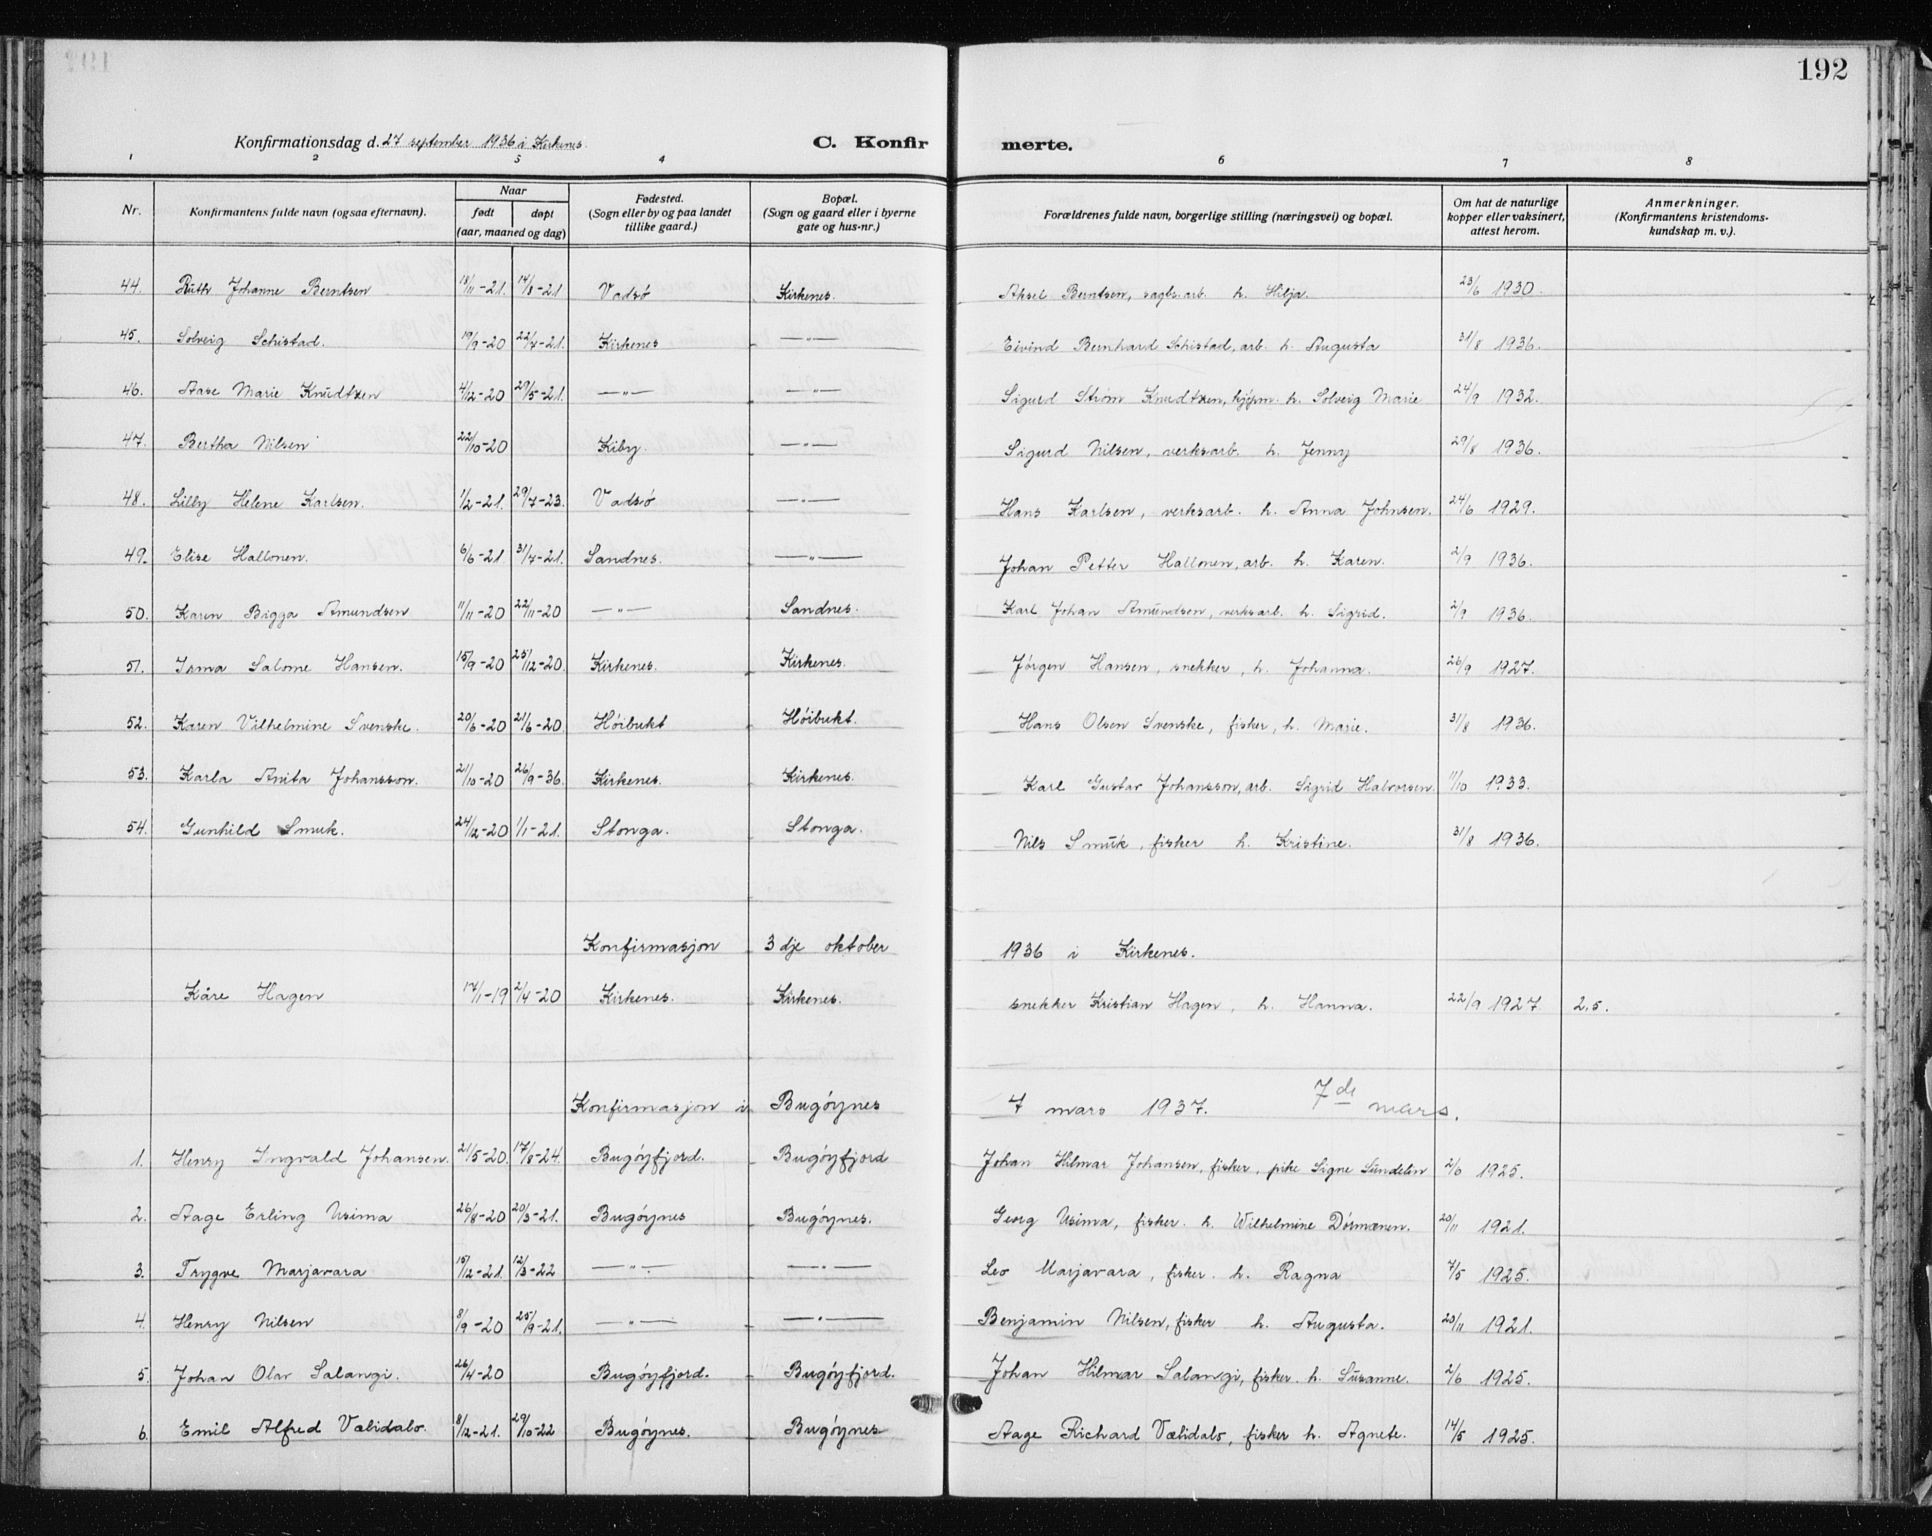 192
Konfirmationsdag d. 27 september 1936 i Kirkenes.
C. Konfirmerte.
1 2 3 4 6 7 8
Nr. Konfirmantens fulde navn (ogsaa efternavn). Naar født døpt (aar, maaned og dag) Fødested. (Sogn eller by og paa landet tillike gaard.) Bopæl. (Sogn og gaard eller i byerne gate og hus-nr.) Forældrenes fulde navn, borgerlige stilling (næringsvei) og bopæl. Om hat de naturlige kopper eller vaksinert, attest herom. Anmerkninger. (Konfirmantens kristendoms-kundskap m. v.).
44. Ruth Johanne Berntsen 18/11-21. 14/8-21 Vadsø Kirkenes. Aksel Berntsen, sagbr.arb. h. Hilja. 23/6 1930.
45. Solveig Schistad. 19/9-20 22/7-21. Kirkenes —"— Eivind Bernhard Schistad, arb. h. Augusta 31/8 1936.
46. Aase Marie Knudtzen 4/12-20 29/5-21. —"— —"— Sigurd Strøm Knudtzen, kjøpm. h. Solveig Marie 24/9 1932.
47. Bertha Nilsen 22/10-20 Kiby. —"— Sigurd Nilsen, verksarb. h. Jenny 29/8 1936.
48. Lilly Helene Karlsen. 1/2-21. 29/7-23. Vadsø —"— Hans Karlsen, verksarb. h. Anna Johnsen. 24/6 1929.
49. Elise Hallonen. 6/6-21. 31/7-21. Sandnes. —"— Johan Petter Hallonen, arb. h. Karen. 2/9 1936.
50. Karen Bigga Amundsen 11/11-20 22/11-20 —"— Sandnes. Karl Johan Amundsen, verksarb. h. Sigrid. 2/9 1936.
51. Irma Salome Hansen. 15/9-20 25/12-20. Kirkenes. Kirkenes. Jørgen Hansen, snekker, h. Johanna. 26/9 1927.
52. Karen Vilhelmine Svenske. 20/6-20 21/6-20. Høibukt Høibukt. Hans Olsen Svenske, fisker, h. Marie. 31/8 1936.
53. Karla Anita Johansson. 21/10-20 26/9-36. Kirkenes. Kirkenes. Karl Gustav Johansson, arb. Sigrid Halvorsen. 11/10 1933.
54. Gunhild Smuk. 24/12-20 1/1-21. Stonga. Stonga. Nils Smuk, fisker h. Kristine. 31/8 1936.
Konfirmasjon 3 dje oktober 1936 i Kirkenes.
Kåre Hagen 17/1-19 2/4-20 Kirkenes. Kirkenes. snekker Kristian Hagen, h. Hanna. 22/9 1927. 2,5.
Konfirmasjon i Bugøynes 7 mars 1937. 7de mars.
1. Henry Ingvald Johansen. 21/5-20. 17/8-24. Bugøyfjord. Bugøyfjord Johan Hilmar Johansen, fisker, pike Signe Sundelin 2/6 1925.
2. Aage Erling Usima 26/8-20 20/3-21. Bugøynes Bugøynes. Georg Usima, fisker. h. Wilhelmine Dørmænen. 20/11 1921.
3. Trygve Marjavara 15/12-21. 12/3-22 —"— —"— Leo Marjavara, fisker. h. Ragna 7/5 1925.
4. Henry Nilsen 8/9-20 25/9-21. —"— —"— Benjamin Nilsen, fisker h. Augusta. 20/11 1921.
5. Johan Olav Salangi. 26/4-20 Bugøyfjord. Bugøyfjord. Johan Hilmar Salangi, fisker. h. Susanne. 2/6 1925.
6. Emil Alfred Vælidalo. 8/12-21. 29/10-22 Bugøynes. Bugøynes Aage Richard Vælidalo, fisker h. Agnete. 14/5 1925.